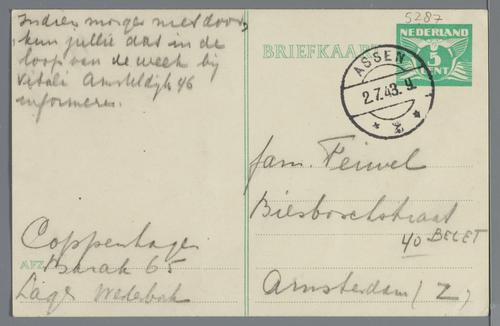 Indien morgen niet door,
kun jullie dat in de
loop van de week bij
Vitali Amsteldijk 46
informeren.
Coppenhagen
AFZ. Barak 65
Lager Westerbork
5287
BRIEFKAART
NEDERLAND
5
CENT
ASSEN
2.7.43.9
fam. Feiwel
Biesboschstraat
40 BELET
Amsterdam (Z)